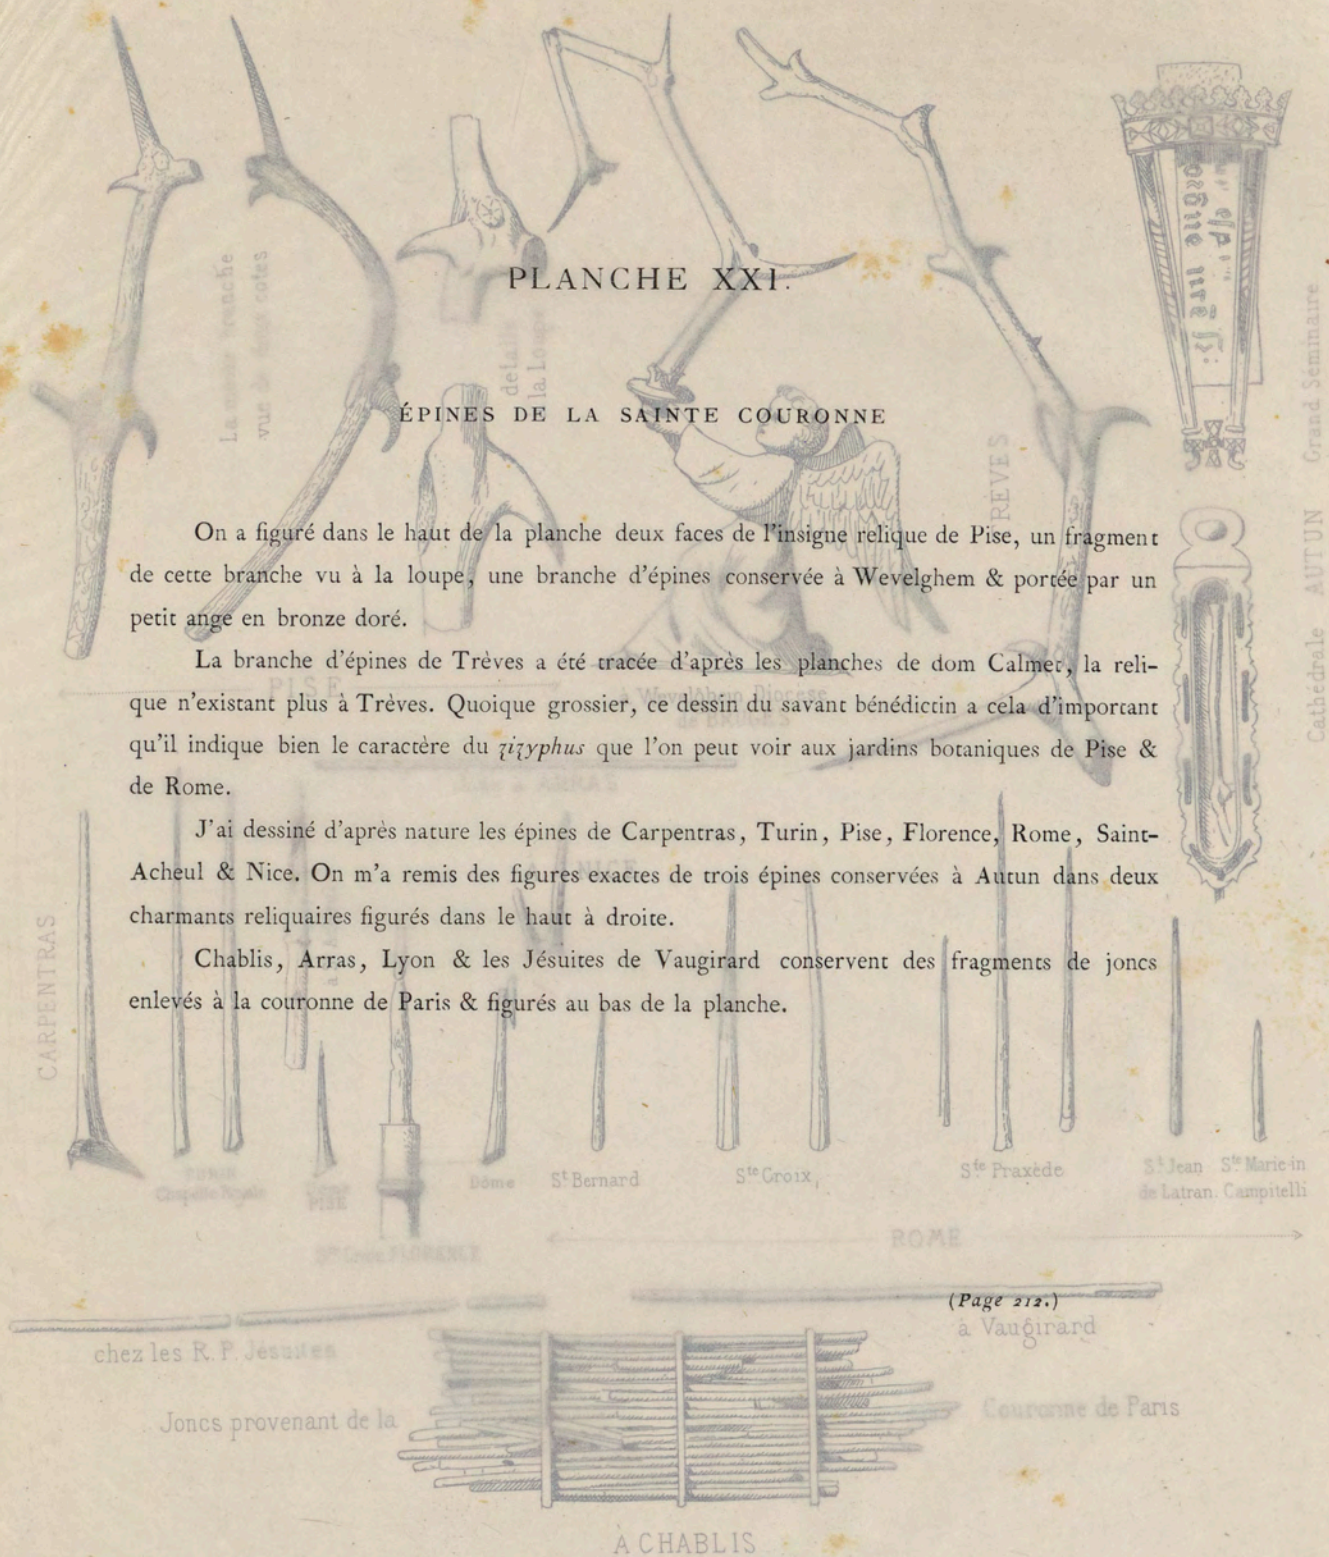 PLANCHE XXI.
ÉPINES DE LA SAINTE COURONNE
On a figuré dans le haut de la planche deux faces de l'insigne relique de Pise, un fragment
de cette branche vu à la loupe, une branche d'épines conservée à Wevelghem & portée par un
petit ange en bronze doré.
La branche d'épines de Trèves a été tracée d'après les planches de dom Calmet, la reli-
que n'existant plus à Trèves. Quoique grossier, ce dessin du savant bénédictin a cela d'important
qu'il indique bien le caractère du zizyphus que l'on peut voir aux jardins botaniques de Pise &
de Rome.
J'ai dessiné d'après nature les épines de Carpentras, Turin, Pise, Florence, Rome, Saint-
Acheul & Nice. On m'a remis des figures exactes de trois épines conservées à Autun dans deux
charmants reliquaires figurés dans le haut à droite.
Chablis, Arras, Lyon & les Jésuites de Vaugirard conservent des fragments de joncs
enlevés à la couronne de Paris & figurés au bas de la planche.
(Page 212.)
La même branche
vue de deux côtés
la Loupe
TRÈVES
Grand Seminaire
Cathédrale AUTUN
PISE
à Wevelghem Diocèse
de BRUGES
ARRAS
NICE
CARPENTRAS
TURIN
Chapelle Royale
PISE
Dôme
St Bernard
Ste Croix,
Ste Praxède
St Jean
de Latran.
Ste Marie in
Campitelli
FLORENCE
ROME
chez les R. P. Jésuites
à Vaugirard
Joncs provenant de la
Couronne de Paris
À CHABLIS